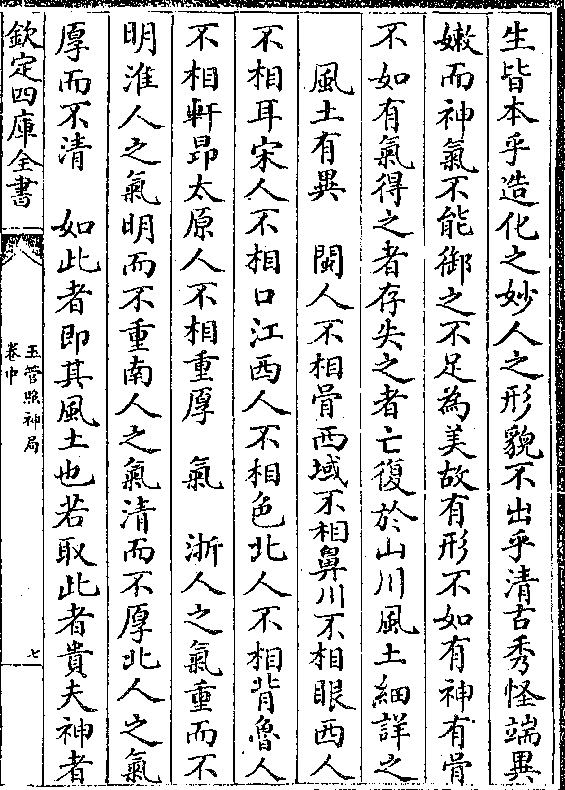 生皆本乎造化之妙人之形貌不出乎清古秀怪端異
嫩而神氣不能御之不足為美故有形不如有神有骨
不如有氣得之者存失之者亡復於山川風土細詳之
風土有異　閩人不相骨西域不相鼻川不相眼西人
不相耳宋人不相口江西人不相色北人不相背魯人
不相軒昂太原人不相重厚　氣　浙人之氣重而不
明淮人之氣明而不重南人之氣清而不厚北人之氣
厚而不清　如此者即其風土也若取此者貴夫神者
欽定四庫全書
玉管照神局
卷中
七